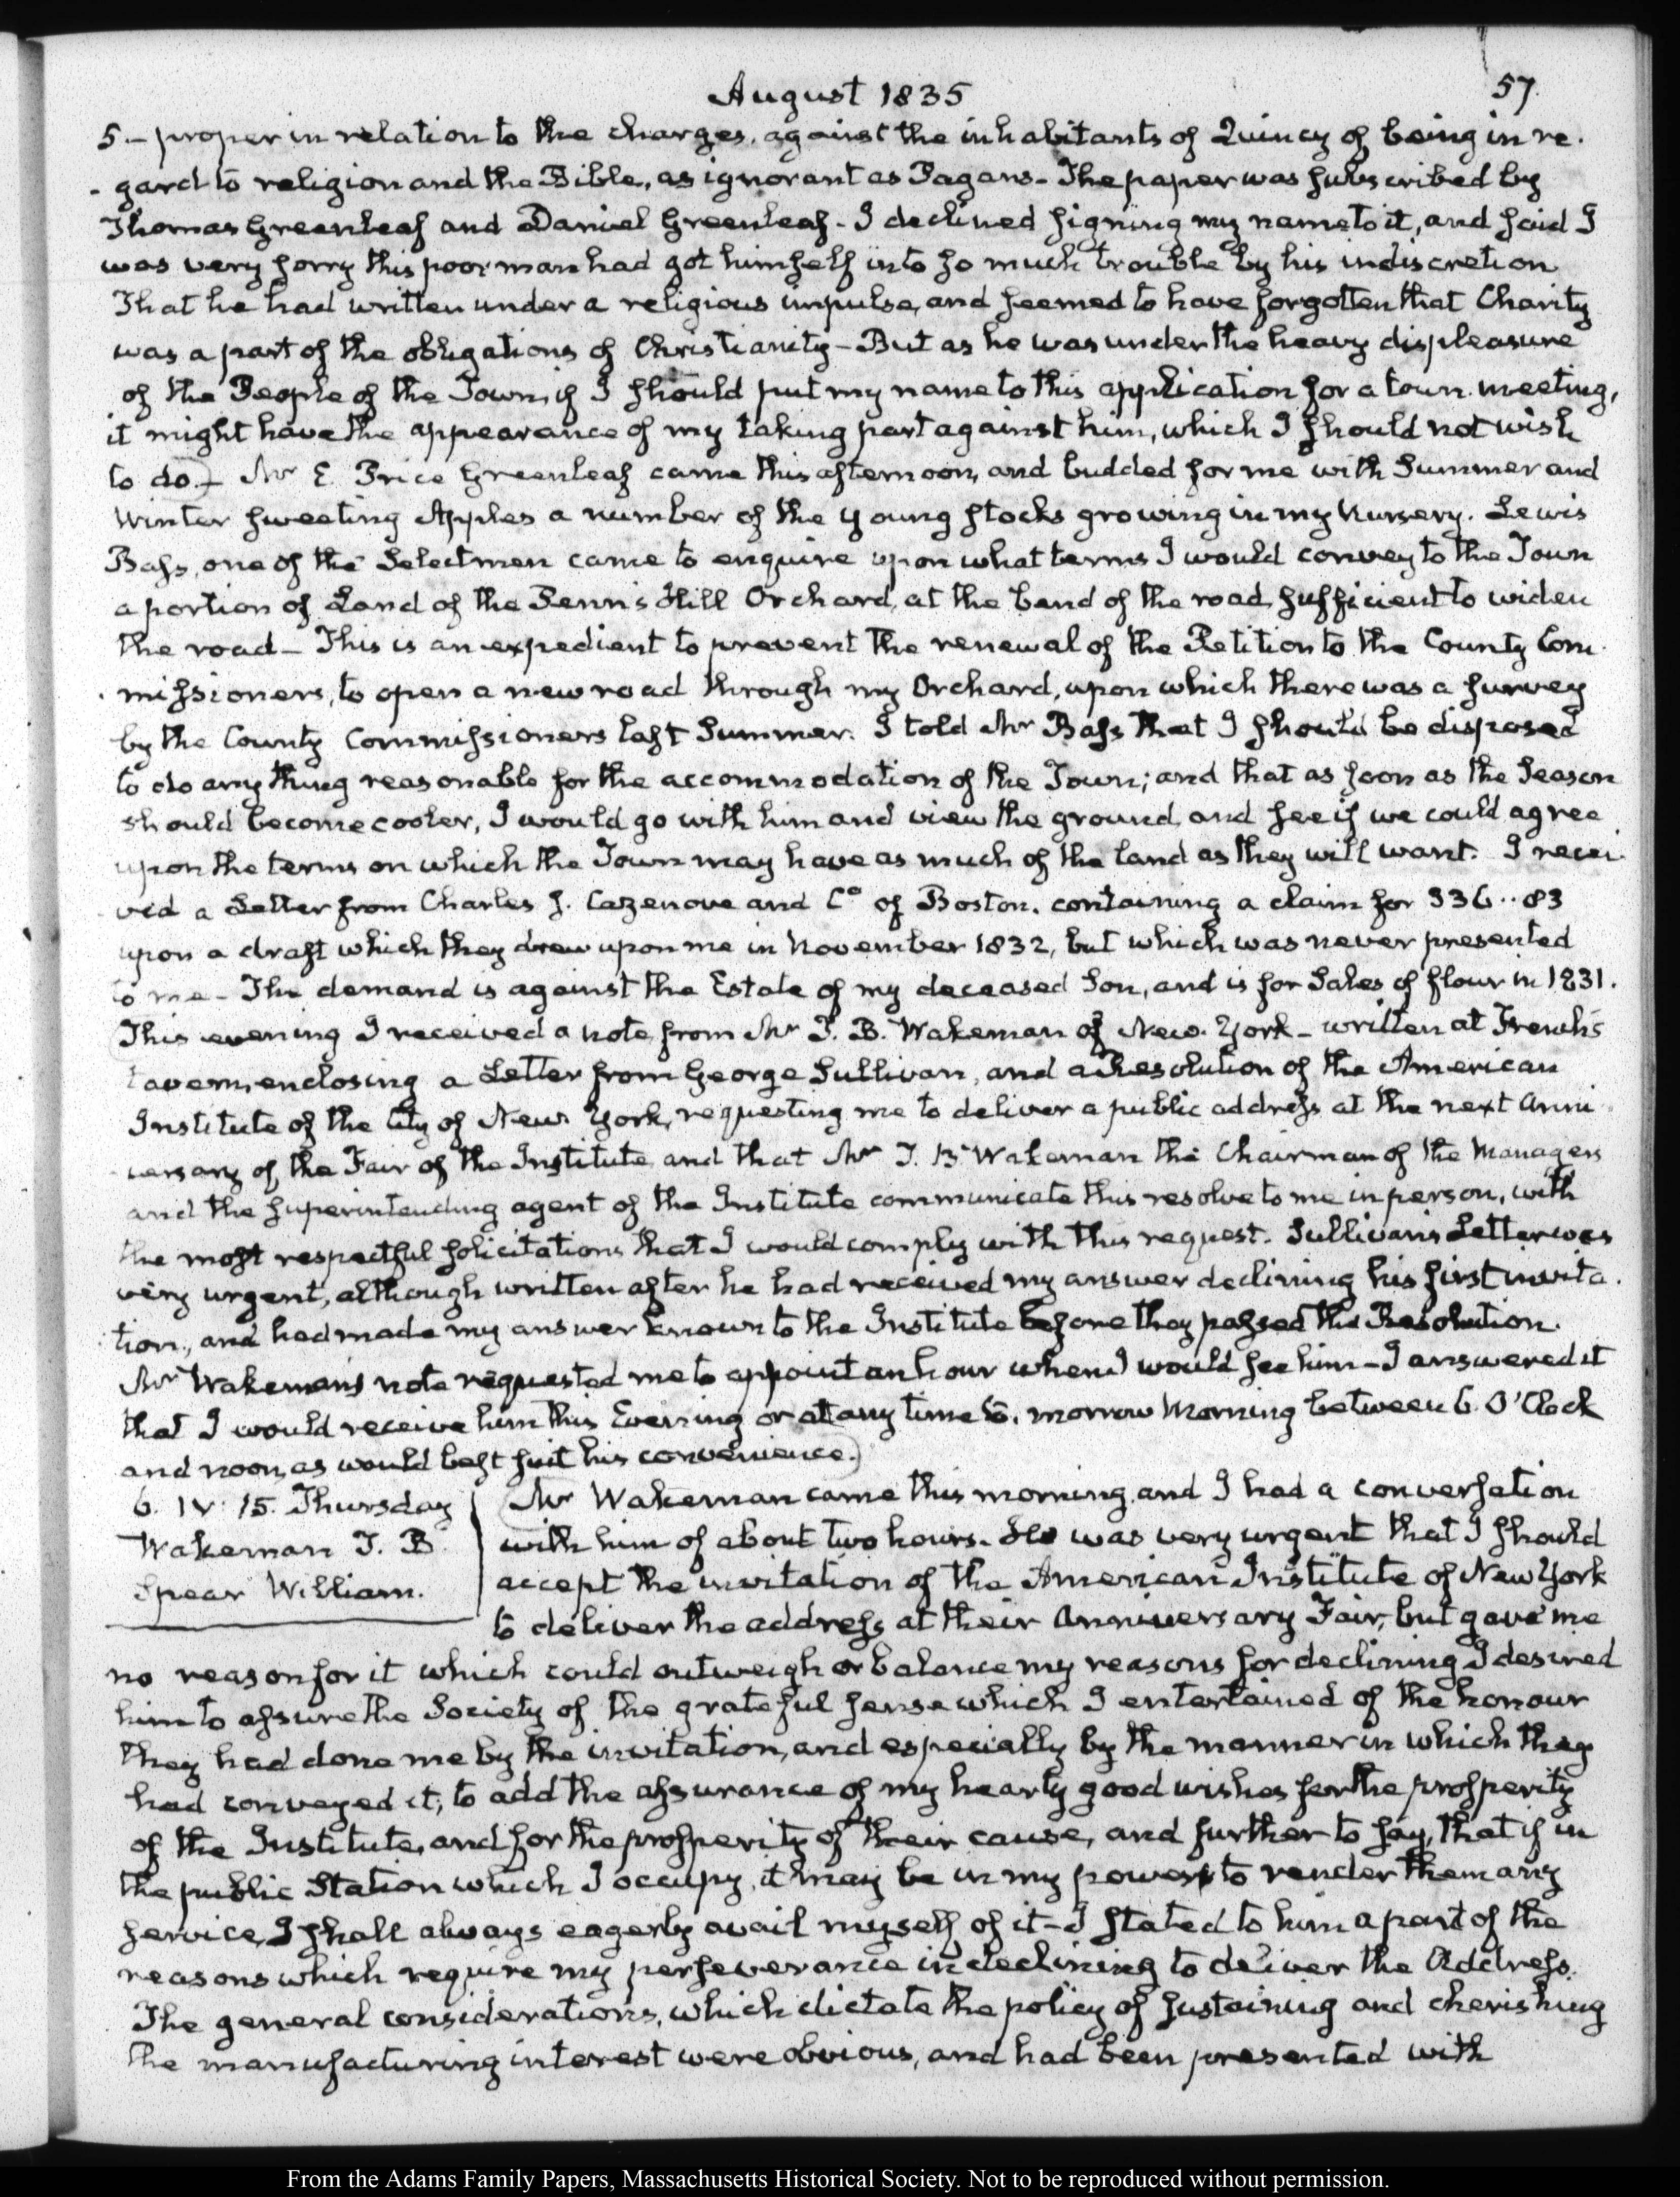 August 1835
57.
5.- proper in relation to the charges, against the inhabitants of Quincy of being in re-
gard to religion and the Bible, as ignorant as Pagans- The paper was subscribed by
Thomas Greenleaf and Daniel Greenleaf- I declined signing my name to it, and said I
was very sorry this poor man had got himself into so much trouble by his indiscretion
That he had written under a religious impulse, and seemed to have forgotten that Charity
was a part of the obligations of Christianity- But as he was under the heavy displeasure
of the People of the Town, if I should put my name to this application for a town-meeting,
it might have the appearance of my taking part against him, which I should not wish
to do.- Mr E. Price Greenleaf came this afternoon, and budded for me with Summer and
Winter sweeting Apples a number of the young stocks growing in my Nursery. Lewis
Bass, one of the Selectmen came to enquire upon what terms I would convey to the Town
a portion of Land of the Penn's Hill Orchard, at the bend of the road sufficient to widen
the road- This is an expedient to prevent the renewal of the Petition to the County Com-
missioners, to open a new road through my Orchard, upon which there was a survey
by the County Commissioners last Summer. I told Mr Bass that I should be disposed
to do any thing reasonable for the accommodation of the Town; and that as soon as the Season
should become cooler, I would go with him and view the ground, and see if we could agree
upon the terms on which the Town may have as much of the land as they will want. I recei-
ved a Letter from Charles J. Cazenove and Co of Boston, containing a claim for 336..83
upon a draft which they drew upon me in November 1832, but which was never presented
to me- The demand is against the Estate of my deceased Son, and is for Sales of flour in 1831.
This evening I received a note from Mr T. B. Wakeman of New-York- written at French's
tavern, enclosing a Letter from George Sullivan, and a Resolution of the American
Institute of the City of New-York, requesting me to deliver a public address at the next Anni-
versary of the Fair of the Institute and that Mr T. B. Wakeman the Chairman of the Managers
and the superintending agent of the Institute communicate this resolve to me in person, with
the most respectful solicitations that I would comply with this request. Sullivan's Letter was
very urgent, although written after he had received my answer declining his first invita-
tion, and had made my answer known to the Institute before they passed the Resolution.
Mr Wakeman's note requested me to appoint an hour when I would see him- I answered it
that I would receive him this Evening or at any time to-morrow Morning between 6. O'Clock
and noon, as would best suit his convenience.
6. IV: 15. Thursday
Wakeman T. B.
Spear William.
Mr Wakeman came this morning, and I had a conversation
with him of about two hours. He was very urgent that I should
accept the invitation of the American Institute of New York
to deliver the address at their Anniversary Fair, but gave me
no reason for it which could outweigh or balance my reasons for declining I desired
him to assure the Society of the grateful sense which I entertained of the honour
they had done me by the invitation, and especially by the manner in which they
had conveyed it; to add the assurance of my hearty good wishes for the prosperity
of the Institute, and for the prosperity of their cause, and further to say, that if in
the public Station which I occupy, it may be in my power to render them any
service, I shall always eagerly avail myself of it- I stated to him a part of the
reasons which require my perseverance in declining to deliver the Address.
The general considerations, which dictate the policy of sustaining and cherishing
the manufacturing interest were obvious, and had been presented with
From the Adams Family Papers, Massachusetts Historical Society. Not to be reproduced without permission.